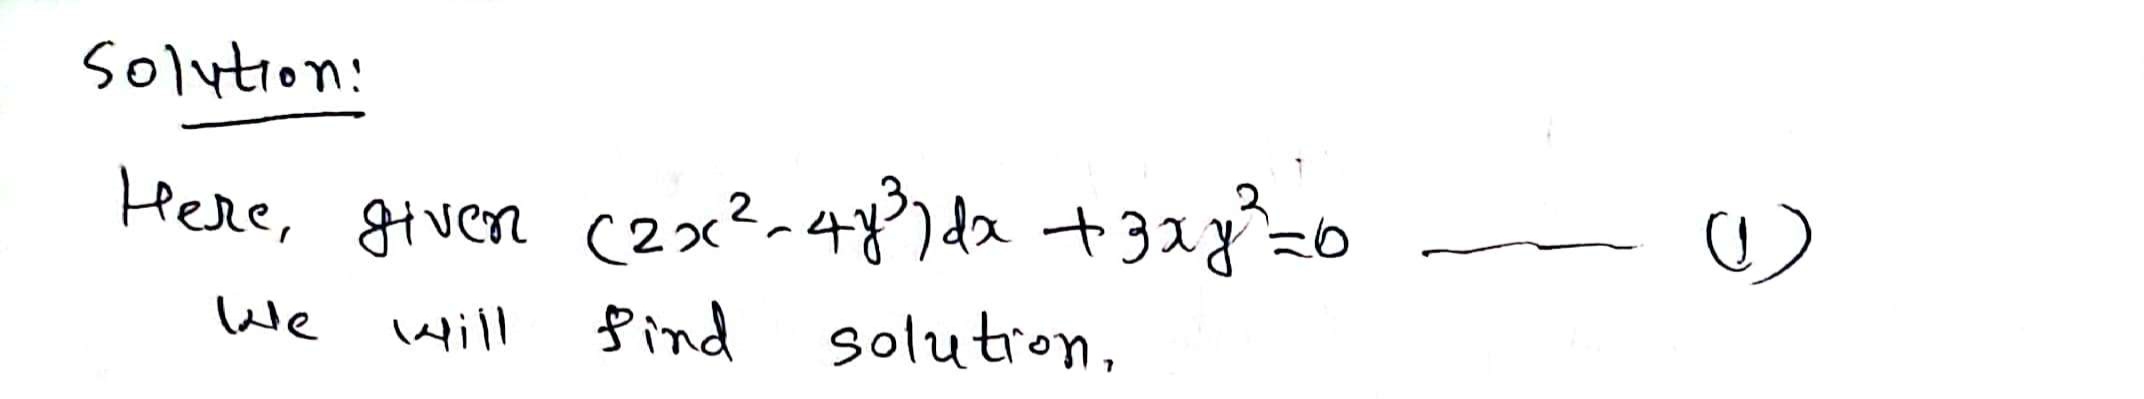 Solution:
Here, given (2x²-4y³)dx +3xy²=0 —— (1)
We will find solution,